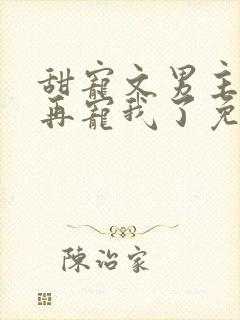 甜寵文男主
再寵我了免
陳治家